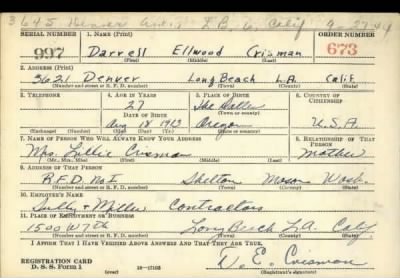 3645 Denver Ave., L.B. 6, Calif 9-27-44
SERIAL NUMBER 1. NAME (Print) ORDER NUMBER
997 Darrell Ellwood Crisman 673
(First) (Middle) (Last)
2. ADDRESS (Print)
3621 Denver Long Beach L.A. Calif.
(Number and street or R. F. D. number) (Town) (County) (State)
3. TELEPHONE 4. AGE IN YEARS 5. PLACE OF BIRTH 6. COUNTRY OF CITIZENSHIP
27 The Dalles
DATE OF BIRTH (Town or county)
Aug 18 1913 Oregon U.S.A.
(Exchange) (Number) (Mo.) (Day) (Yr.) (State or country)
7. NAME OF PERSON WHO WILL ALWAYS KNOW YOUR ADDRESS 8. RELATIONSHIP OF THAT PERSON
Mrs. Lillie Crisman Mother
(Mr., Mrs., Miss) (First) (Middle) (Last)
9. ADDRESS OF THAT PERSON
R.F.D. No 1 Shelton Mason Wash.
(Number and street or R. F. D. number) (Town) (County) (State)
10. EMPLOYER'S NAME
& Miller Contractors
11. PLACE OF EMPLOYMENT OR BUSINESS
1500 W 7th Long Beach L.A. Calif.
(Number and street or R. F. D. number) (Town) (County) (State)
I AFFIRM THAT I HAVE VERIFIED ABOVE ANSWERS AND THAT THEY ARE TRUE.
REGISTRATION CARD
D. S. S. Form 1 (over) 16-17105 D. E. Crisman
(Registrant's signature)